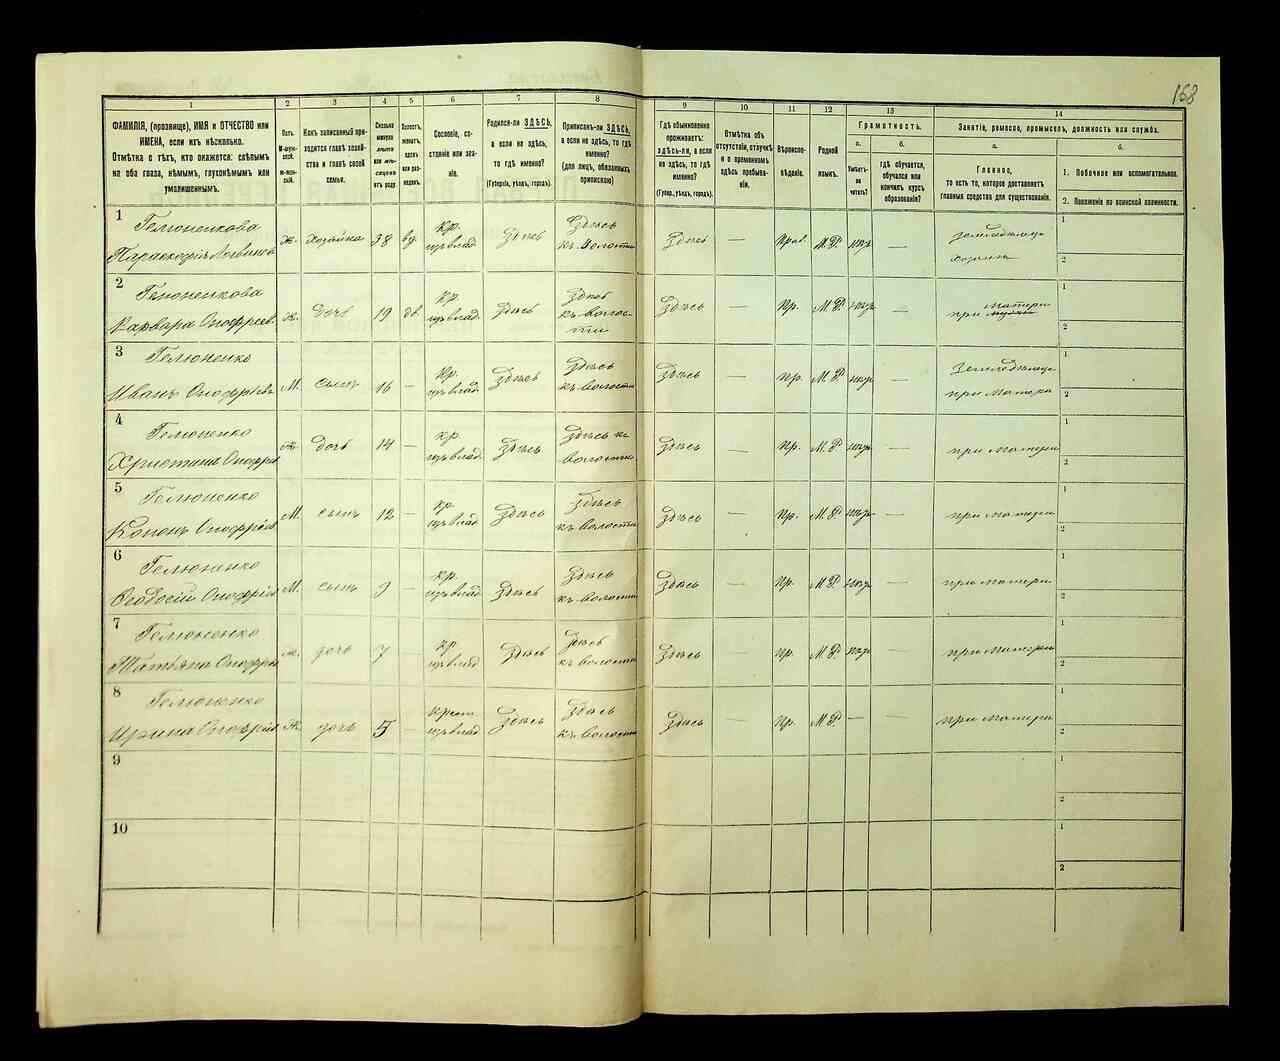 168
1
2
3
4
5
6
7
8
9
10
11
12
13
14
ФАМИЛІЯ, (прозвище), ИМЯ и ОТЧЕСТВО или
ИМЕНА, если ихъ нѣсколько.
Отмѣтка о тѣхъ, кто окажется: слѣпымъ
на оба глаза, нѣмымъ, глухонѣмымъ или
умалишеннымъ.
Полъ.
М-муж-
ской.
Ж-жен-
скій.
Какъ записанный при-
ходится главѣ хозяй-
ства и главѣ своей
семьи.
Сколько
минуло
лѣтъ
или мѣ-
сяцевъ
отъ роду.
Холостъ,
женатъ,
вдовъ
или раз-
веденъ.
Сословіе, со-
стояніе или зва-
ніе.
Родился-ли ЗДѢСЬ,
а если не здѣсь,
то гдѣ именно?
(Губернія, уѣздъ, городъ).
Приписанъ-ли ЗДѢСЬ,
а если не здѣсь, то гдѣ
именно?
(для лицъ, обязанныхъ
припискою)
Гдѣ обыкновенно
проживаетъ:
здѣсь-ли, а если
не здѣсь, то гдѣ
именно?
(Губер., уѣздъ, городъ).
Отмѣтка объ
отсутствіи, отлучкѣ
и о временномъ
здѣсь пребыва-
ніи.
Вѣроиспо-
вѣданіе.
Родной
языкъ.
Грамотность.
а.
Умѣетъ-
ли
читать?
б.
гдѣ обучается,
обучался или
кончилъ курсъ
образованія?
Занятіе, ремесло, промыселъ, должность или служба.
а.
Главное,
то есть то, которое доставляетъ
главныя средства для существованія.
б.
1. Побочное или вспомогательное.
2. Положеніе по воинской повинности.
1
Гелюненкова
Параскофія Логвинова
Ж.
хозяйка
38
вд.
Кр.
Здѣсь
Здѣсь
къ волости
Здѣсь
—
Прав.
М.Р.
—
1
2
2
Гелюненкова
Варвара Онофріев.
ж.
дочь
19
дв.
кр.
Здѣсь
Здѣсь
къ волос-
ти
Здѣсь
—
Пр.
М.Р.
—
матери
при
1
2
3
Гелюненко
Иванъ Онофріевъ
М.
сынъ
16
—
Кр.
Здѣсь
Здѣсь
къ волости
Здѣсь
—
пр.
М.Р.
—
при матери
1
2
4
Гелюненко
Христина Онофрі
ж.
дочь
14
—
кр.
Здѣсь
Здѣсь къ
волости
Здѣсь
—
Пр.
М.Р.
—
при матери
1
2
5
Гелюненко
Кононъ Онофріев
М.
сынъ
12
—
кр.
Здѣсь
Здѣсь
къ волости
Здѣсь
—
Пр.
М.Р.
—
при матери
1
2
6
Гелюненко
Ѳеодосій Онофріев
М.
сынъ
9
—
кр.
Здѣсь
Здѣсь
къ волости
Здѣсь
—
Пр.
М.Р.
—
при матери
1
2
7
Гелюненко
Татьяна Онофрі
ж.
дочь
7
—
кр.
Здѣсь
Здѣсь
къ волости
Здѣсь
—
Пр.
М.Р.
—
при матери
1
2
8
Гелюненко
Ирина Онофріев
Ж.
дочь
5
—
крест.
Здѣсь
Здѣсь
къ волости
Здѣсь
—
Пр.
М.Р.
—
—
при матери
1
2
9
1
2
10
1
2